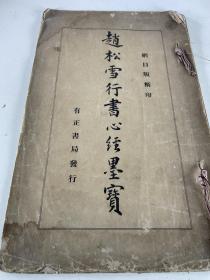 網目版精印
趙松雪行書心經墨寶
有正書局發行